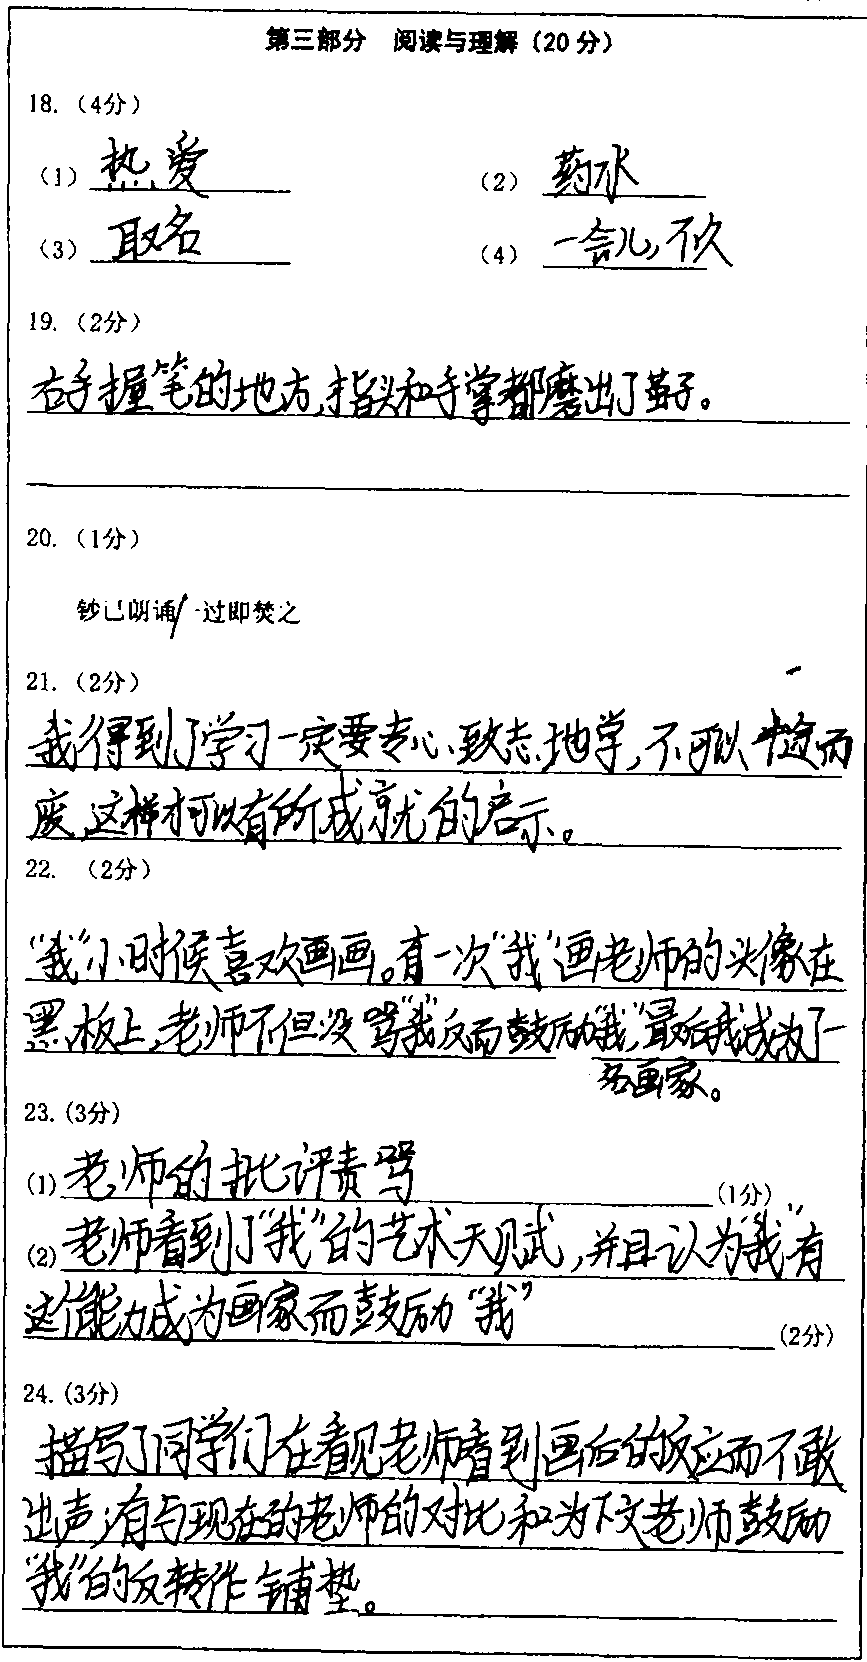 第三部分 阅读与理解（20分）
18.（4分）
（1）热爱 （2）药水
（3）取名 （4）一会儿,不久
19.（2分）
右手握笔的地方,指头和手掌都磨出了茧子。
20.（1分）
钞已朗诵/一过即焚之
21.（2分）
我得到了学习一定要专心致志地学,不可以半途而
废,这样才可以有所成就的启示。
22. （2分）
“我”小时候喜欢画画。有一次“我”画老师的头像在
黑板上,老师不但没骂“我”反而鼓励“我”,最后我成为了一
名画家。
23.(3分)
(1)老师的批评责骂 (1分)
(2)老师看到了“我”的艺术天赋,并且认为“我”有
这个能力成为画家而鼓励“我” (2分)
24.(3分)
描写了同学们在看见老师看到画后的反应而不敢
出声,有与现在的老师的对比和为下文老师鼓励
“我”的反转作铺垫。